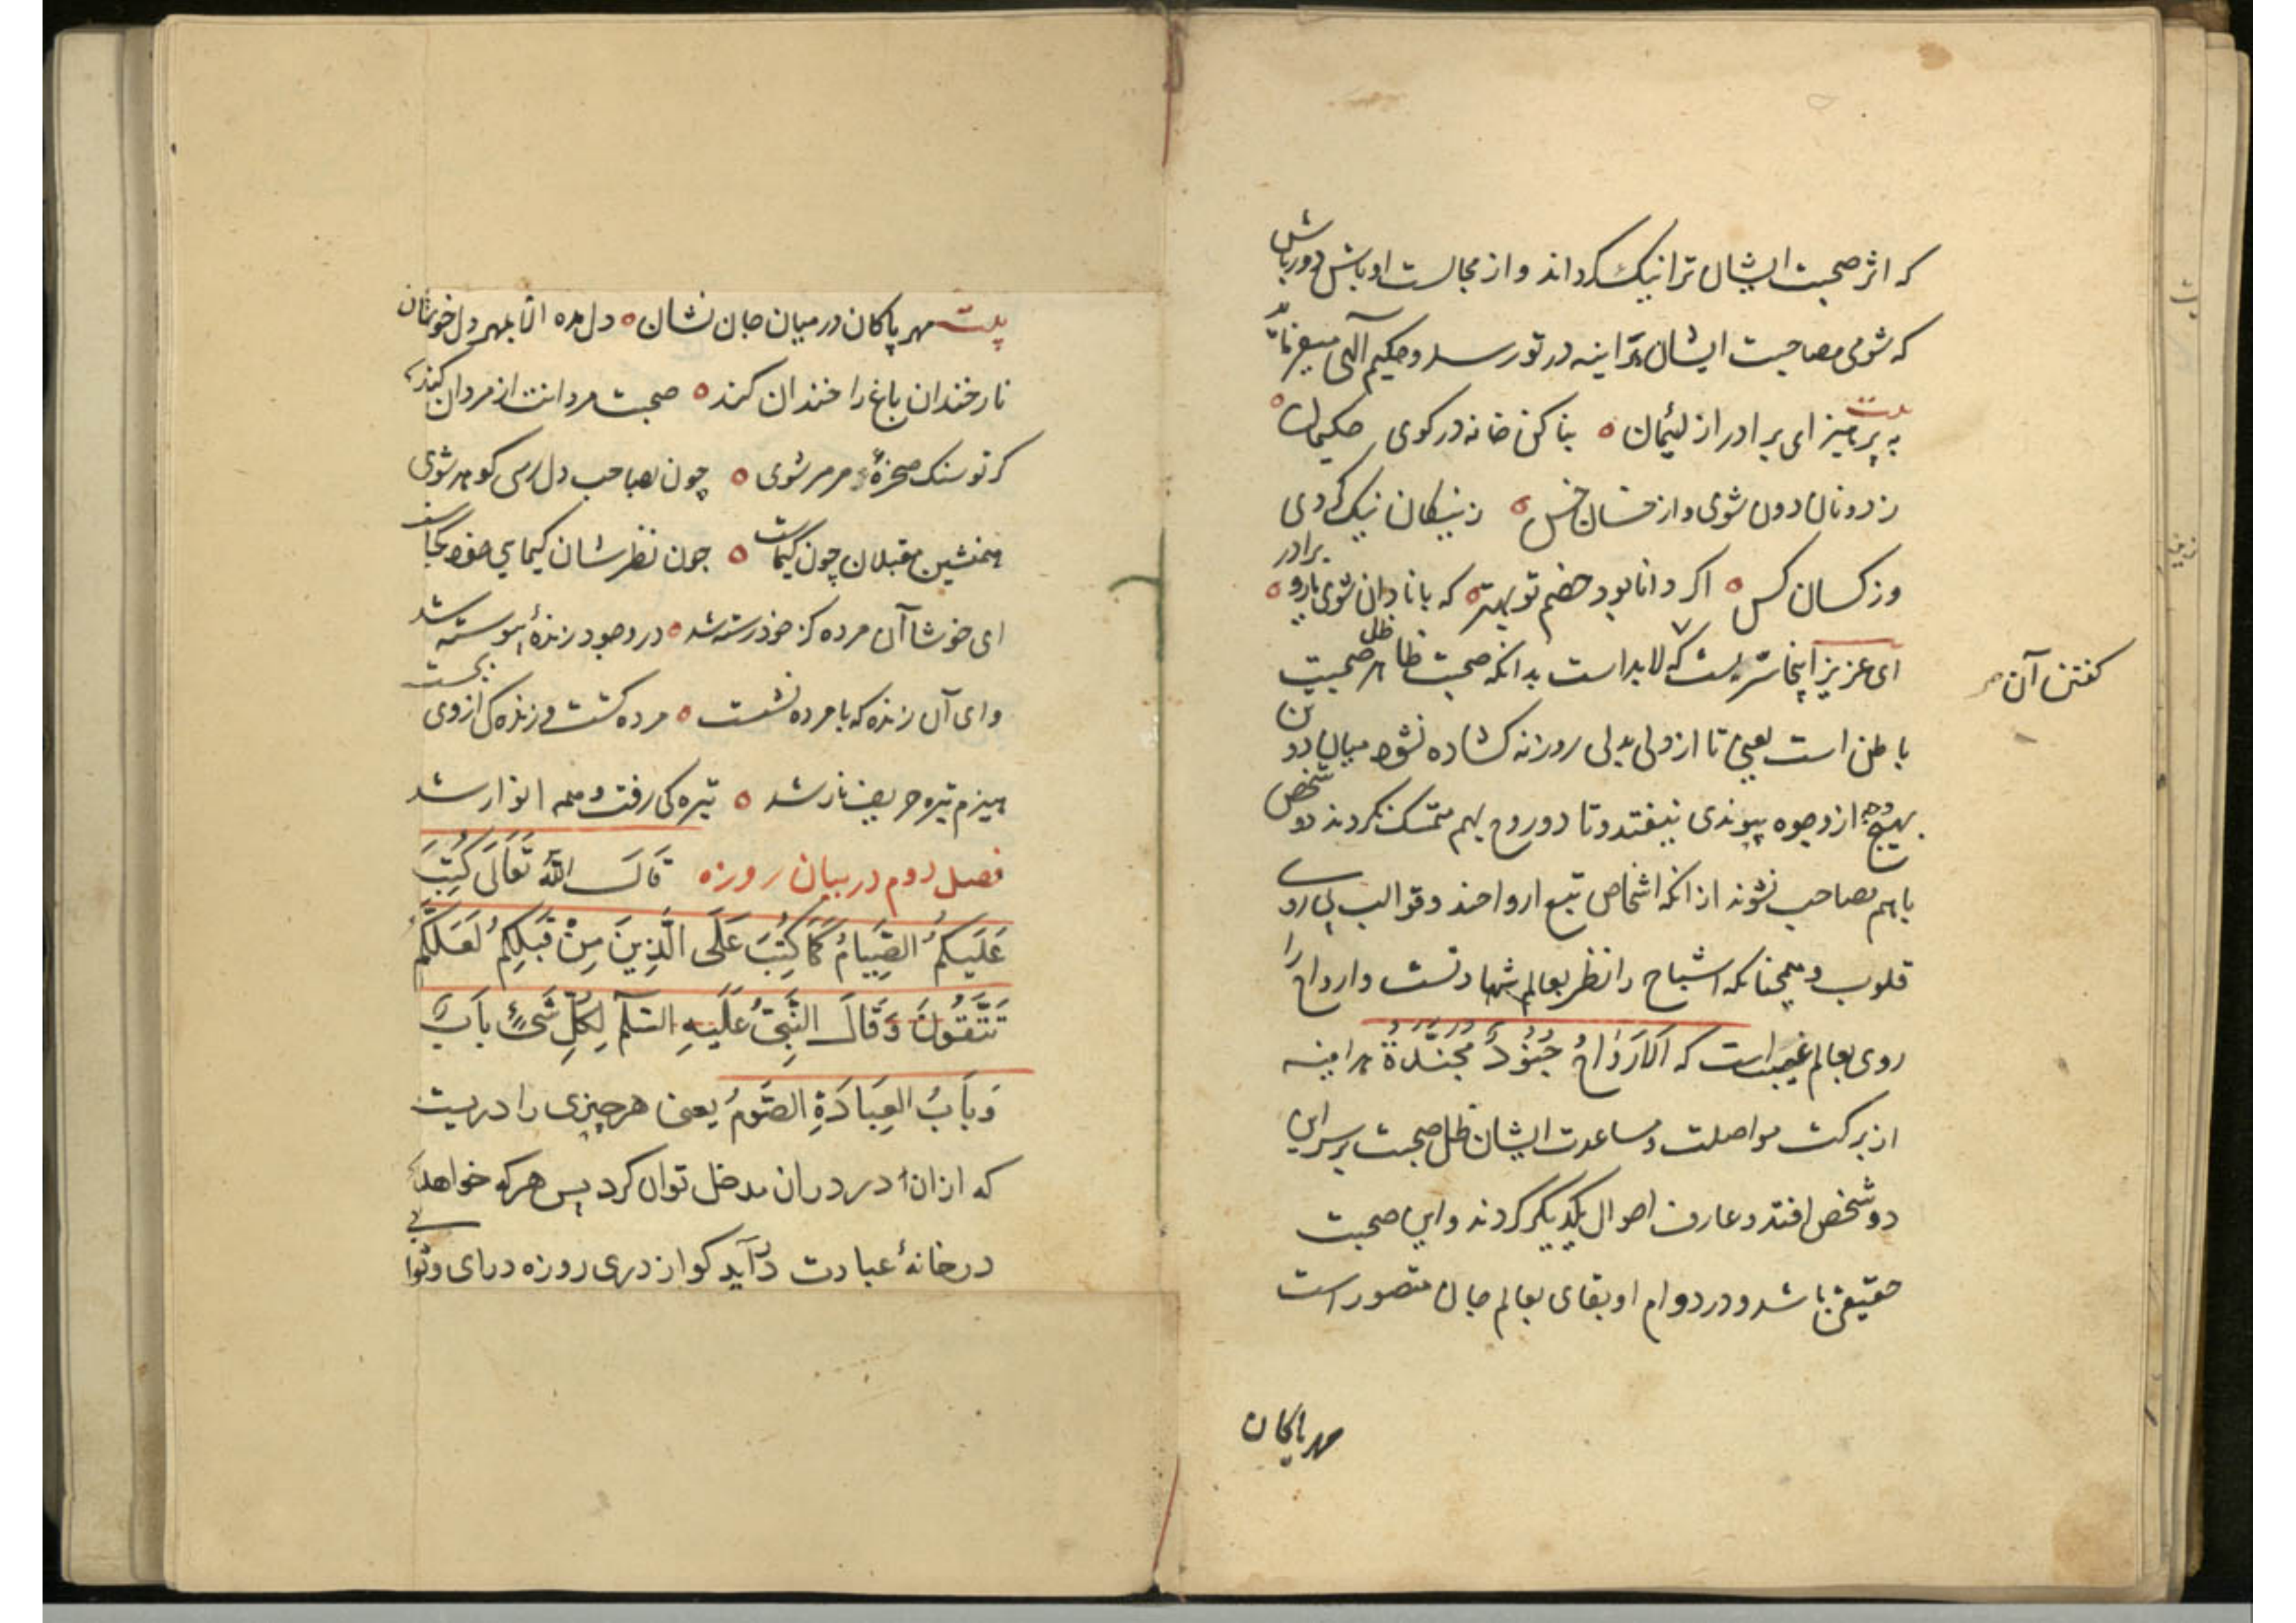 که اثر صحبت ایشان ترا نیک کرداند و از مجالست اوباش دور باش
که شومی مصاحبت ایشان هر اینه در تو رسد و حکیم آلهی میفرماید
بیت
به پرهیز ای برادر از لئیمان ٥ بنا کن خانه در کوی حکیمان ٥
ز دونان دون شوی و از خسان خس ٥ ز نیکان نیک کردی
وز کسان کس ٥ اکر دانا بود خصم تو بهتر ٥ که با نادان شوی یار و برادر ٥
ای عزیز اینجا سریست که لابد است بدانکه صحبت ظاهر ظل صحبت
کفتن آن
باطن است یعنی تا از دلی بدلی روزنه کشاده نشود میان دو تن
بهیچ وجه از وجوه پیوندی نیفتد و تا دو روح بهم متمسک نکردند دو شخص
باهم مصاحب نشوند از انکه اشخاص تبع ارواحند و قوالب پی رو
قلوب و همچنانکه اشباح را نظر بعالم شهادتست و ارواح را
روی بعالم غیبست که اَلاَروَاحُ جُنُودٌ مُجَنَّدَةٌ هر اینه
از برکت مواصلت و مساعدت ایشان ظل صحبت بر سر این
دو شخص افتد و عارف احوال یکدیکر کردند و این صحبت
حقیقی باشد و در دوام او بقای بعالم جان متصور است
مهر پاکان
بیت مهر پاکان در میان جان نشان ٥ دل مده الا بمهر دل خوشان
نار خندان باغ را خندان کند ٥ صحبت مردانت از مردان کند
کر تو سنک صخرهٔ مرمر شوی ٥ چون بصاحب دل رسی کوهر شوی
همنشین مقبلان چون کیمیاست ٥ چون نظرشان کیمیای خود کجاست
ای خوشا آن مرده کز خود رسته شد ٥ در وجود زندهٔ پیوسته شد
وای آن زنده که با مرده نشست ٥ مرده کشت و زندکی از وی بجست
هیزم تیره حریف نار شد ٥ تیرکی رفت و همه انوار شد
فصل دوم در بیان روزه قَالَ اللهُ تَعَالَی کُتِبَ
عَلَیکُمُ الصِّیَامُ کَمَا کُتِبَ عَلَی الَّذِینَ مِنْ قَبلِکُم لَعَلَّکُم
تَتَّقُونَ وَقَالَ النَّبِیُّ عَلَیهِ السَّلَم لِکُلِّ شَیٍ بَابٌ
وَبَابُ العِبَادَةِ الصَّومُ یعنی هر چیزی را دریست
که از ان در در ان مدخل توان کرد پس هر که خواهد
در خانهٔ عبادت در آید کو از دری روزه درای و ثوابی